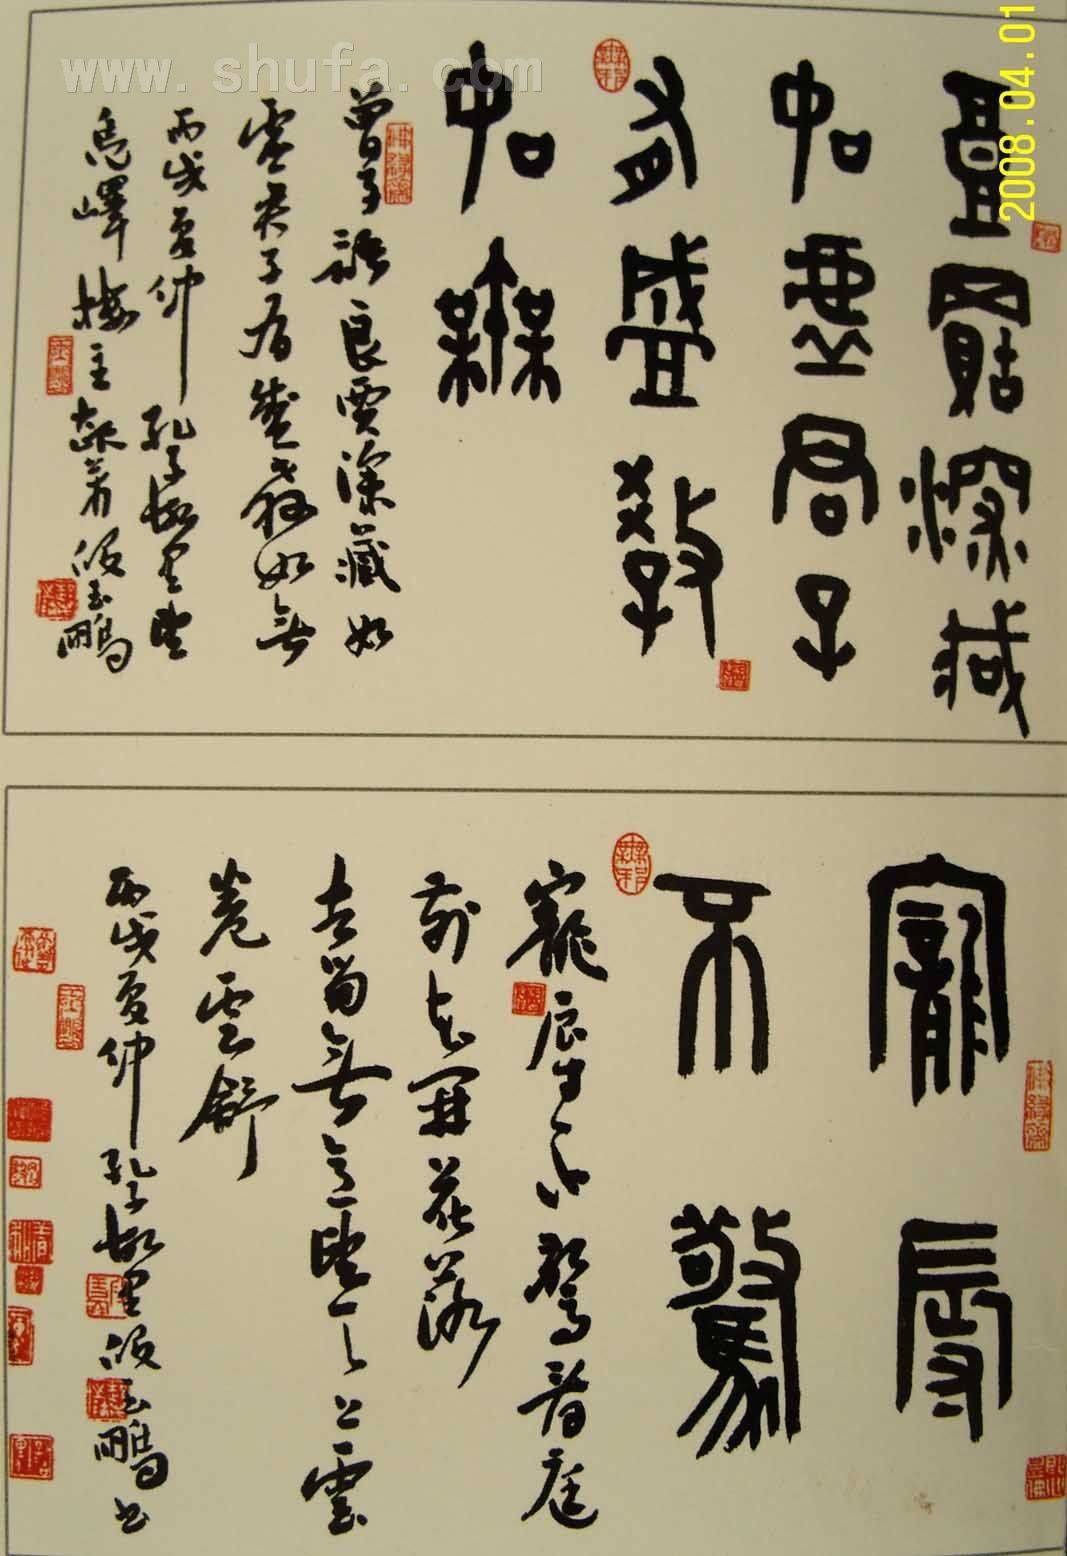 www.shufa.com
2008.04.01
良賈深藏
如虛君子
有盛教
如無
曾子語良賈深藏如
虛君子有盛教如無
丙戌夏仲 孔子故里
嶧樓主 段玉鵬
寵辱
不驚
寵辱不驚看庭
前花開花落
去留無意望天上雲
卷雲舒
丙戌夏仲孔子故里段玉鵬書